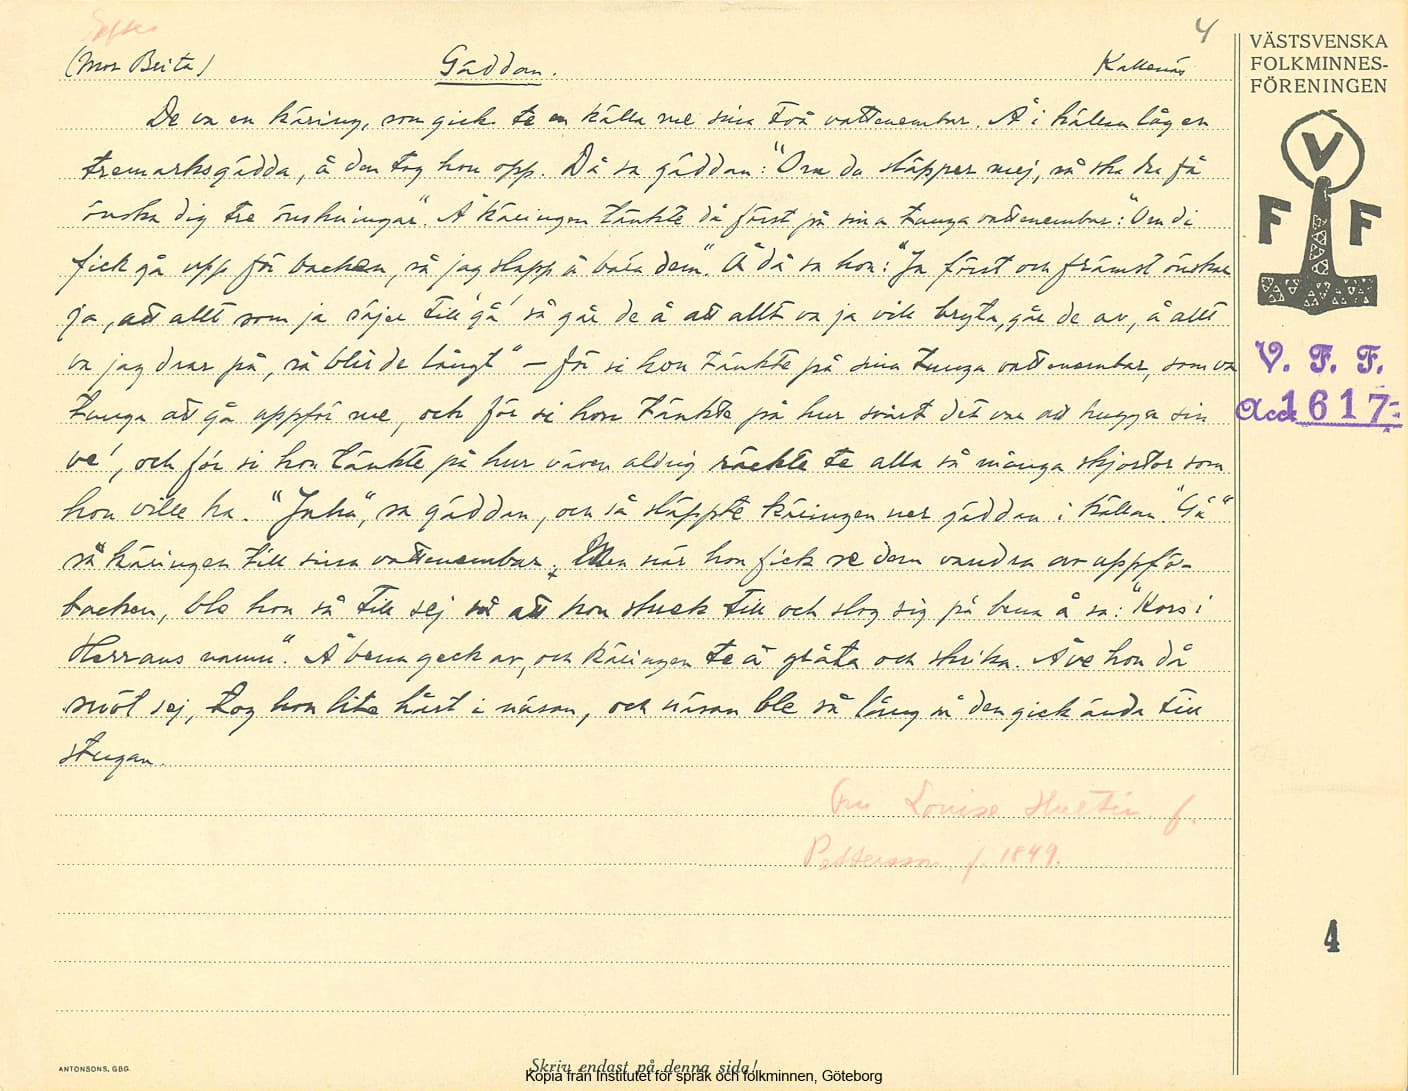 4
(Mor Beita)
Gäddan.
Kallenäs
De va en käring, som gick te en källa me sina två vattenembar. Å i källan låg en
tremarksgädda, å den tog hon opp. Då sa gäddan: "Om du släpper mej, så ska du få
önska dig tre önskningar". Å käringen tänkte då först på sina tunga vattenembar: "Om di
fick gå upp för backen, så jag slapp å bära dem". Å då sa hon: "Ja först och främst önskar
ja, att allt som ja säjer till 'gå' så går de å att allt va ja vill bryta, går de av, å allt
va jag drar på, så blir de långt" – för si hon tänkte på sina tunga vattenembar, som va
tunga att gå uppför me, och för si hon tänkte på hur svårt det var att hugga sin
ve', och för si hon tänkte på hur väven aldrig räckte te alla så många skjortor som
hon ville ha. "Jaha", sa gäddan, och så släppte käringen ner gäddan i källan. "Gå"
sa käringen till sina vattenembar. Men när hon fick se dem vandra av uppför
backen, ble hon så till sej så att hon stack till och slog sig på bena å sa: "Kors i
Herrans namn". Å bena geck av, och käringen te å gråta och skrika. Å ve hon då
snöt sej, tog hon lite hårt i näsan, och näsan ble så lång så den gick ända till
stugan.
Louise Hultin f.
Pettersson f. 1849.
VÄSTSVENSKA
FOLKMINNES-
FÖRENINGEN
V
F F
V. F. F.
Acc. 1617:
4
ANTONSONS, GBG
Skriv endast på denna sida!
Kopia från Institutet för språk och folkminnen, Göteborg